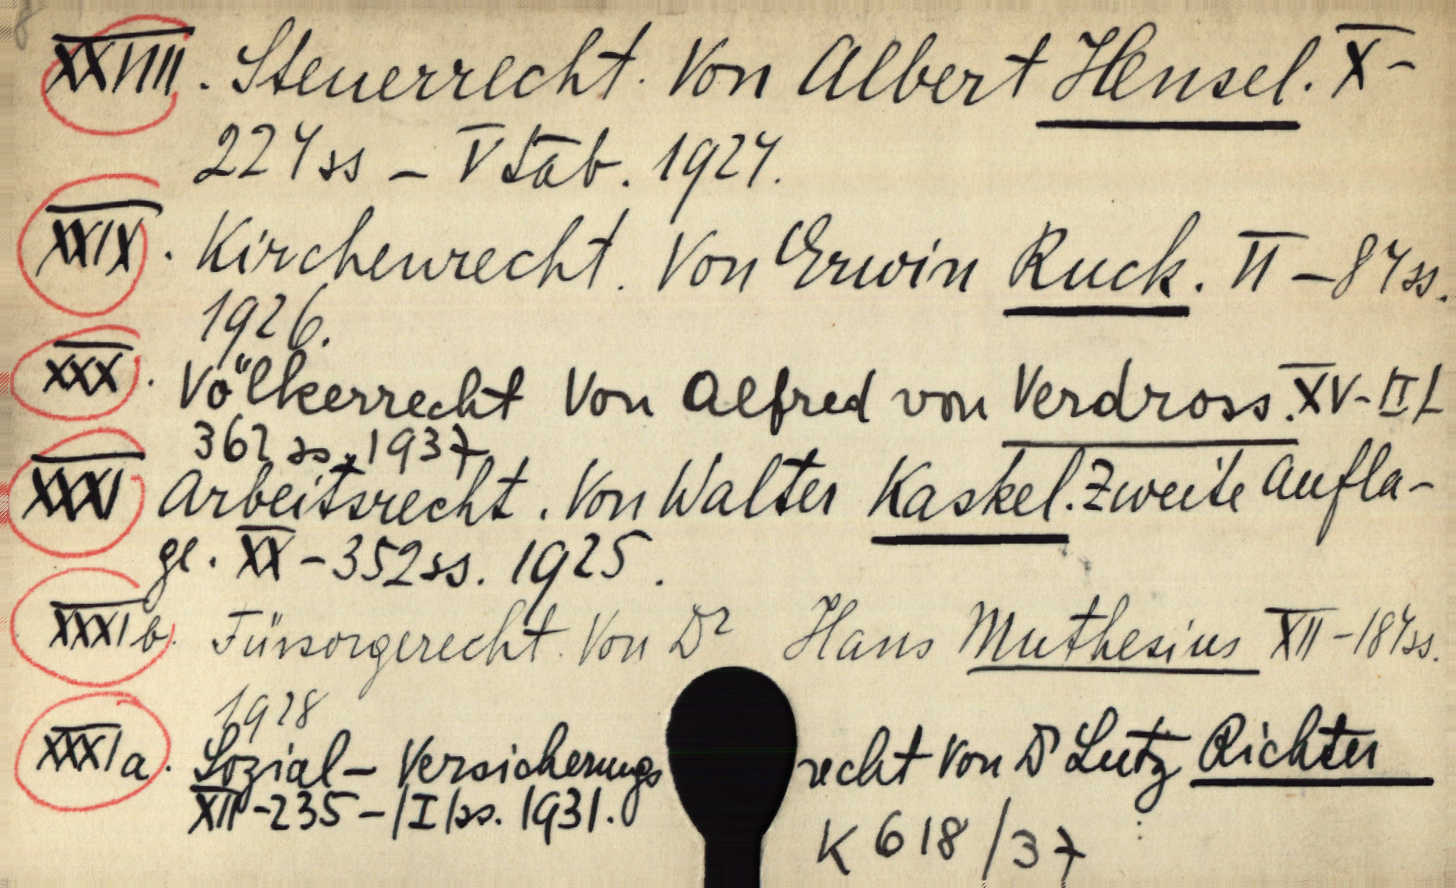 8
XXVIII. Steuerrecht. Von Albert Hensel. X-
224 ss - V tab. 1924.
XXIX. Kirchenrecht. Von Erwin Ruck. II - 84 ss.
1926.
XXX. Völkerrecht Von Alfred von Verdross. XV-
362 ss. 1937
XXXI Arbeitsrecht. Von Walter Kaskel. Zweite Aufla-
ge. XX - 352 ss. 1925.
XXXI b. Fürsorgerecht. Von Dr Hans Muthesius XII - 184 ss.
1928
XXXI a. Sozial - Versicherungs recht Von Dr Lutz Richter
XII - 235 - /I/ ss. 1931.
K 618/37